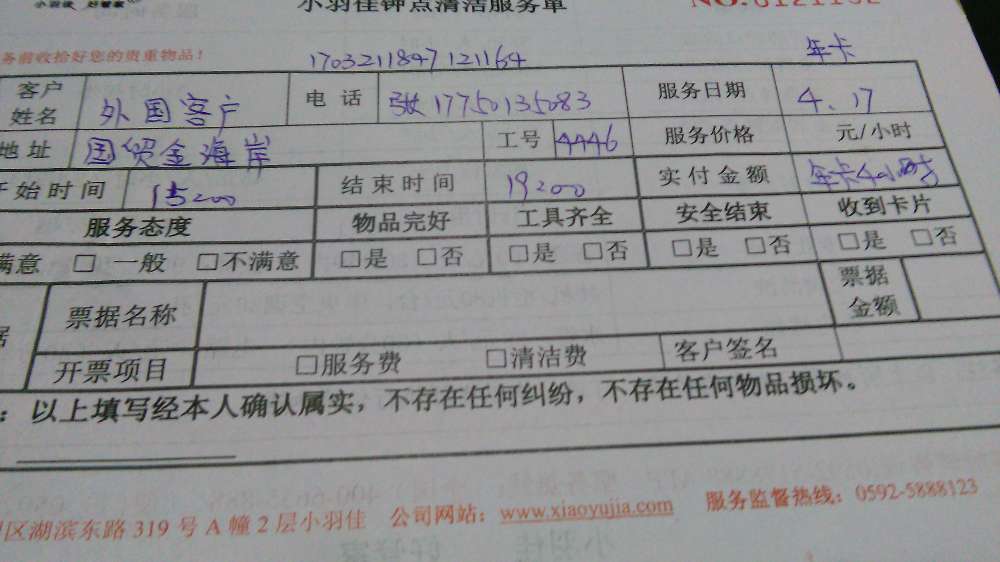 小羽佳 好管家
小羽佳钟点清洁服务单 NO.0121102
务前收拾好您的贵重物品! 1703211847121164 年卡
客户姓名 外国客户 电话 张17750135083 服务日期 4.17
地址 国贸金海岸 工号 4446 服务价格 元/小时
开始时间 15:00 结束时间 19:00 实付金额 年卡4小时
服务态度 物品完好 工具齐全 安全结束 收到卡片
满意 □ 一般 □不满意 □是 □否 □是 □否 □是 □否 □是 □否
据 票据名称 票据金额
开票项目 □服务费 □清洁费 客户签名
: 以上填写经本人确认属实,不存在任何纠纷,不存在任何物品损坏。
区湖滨东路 319 号 A 幢 2 层小羽佳 公司网站: www.xiaoyujia.com 服务监督热线: 0592-5888123